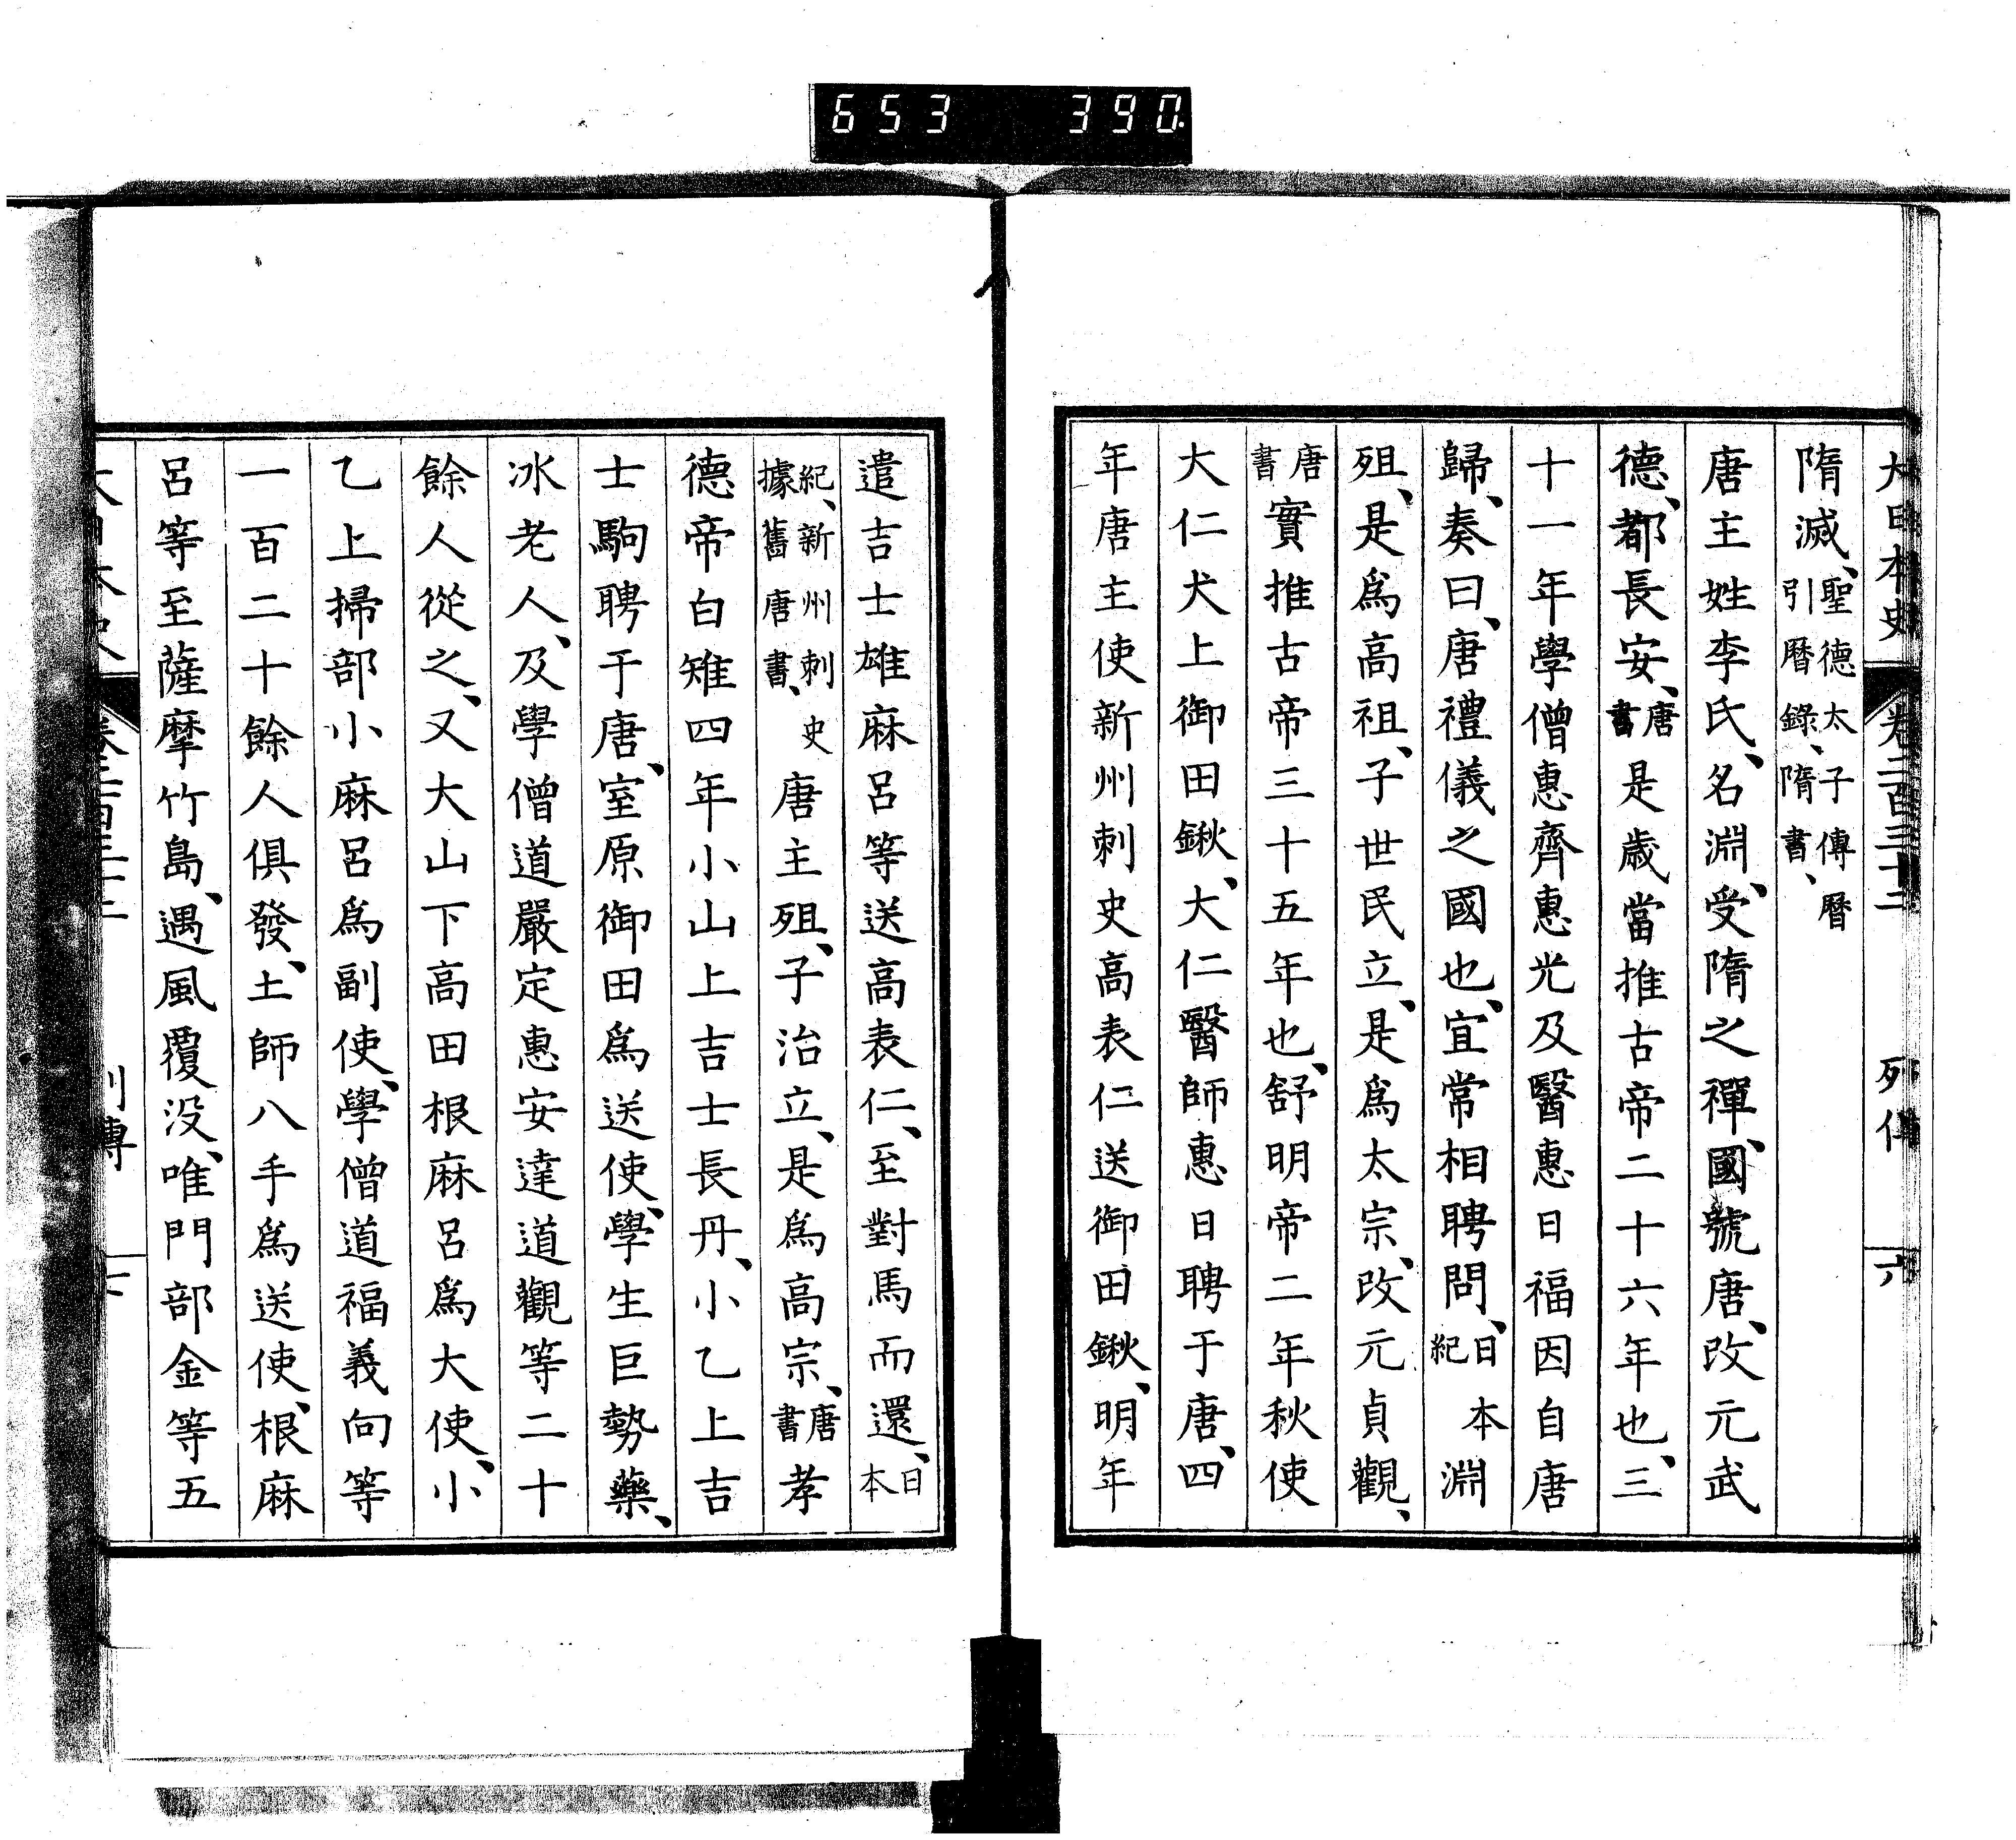 653 390.
大日本史 卷二百四十二 列傳 六
隋滅、聖德太子傳曆引曆錄、隋書、
唐主姓李氏、名淵、受隋之禪、國號唐、改元武
德、都長安、唐書是歲當推古帝二十六年也、三
十一年學僧惠齊惠光及醫惠日福因自唐
歸、奏曰、唐禮儀之國也、宜常相聘問、日本紀淵
殂、是爲高祖、子世民立、是爲太宗、改元貞觀、
唐書實推古帝三十五年也、舒明帝二年秋使
大仁犬上御田鍬、大仁醫師惠日聘于唐、四
年唐主使新州刺史高表仁送御田鍬、明年
遣吉士雄麻呂等送高表仁、至對馬而還、日本
紀、新州刺史據舊唐書、唐主殂、子治立、是爲高宗、唐書孝
德帝白雉四年小山上吉士長丹、小乙上吉
士駒聘于唐、室原御田爲送使、學生巨勢藥、
冰老人、及學僧道嚴定惠安達道觀等二十
餘人從之、又大山下高田根麻呂爲大使、小
乙上掃部小麻呂爲副使、學僧道福義向等
一百二十餘人俱發、土師八手爲送使、根麻
呂等至薩摩竹島、遇風覆没、唯門部金等五